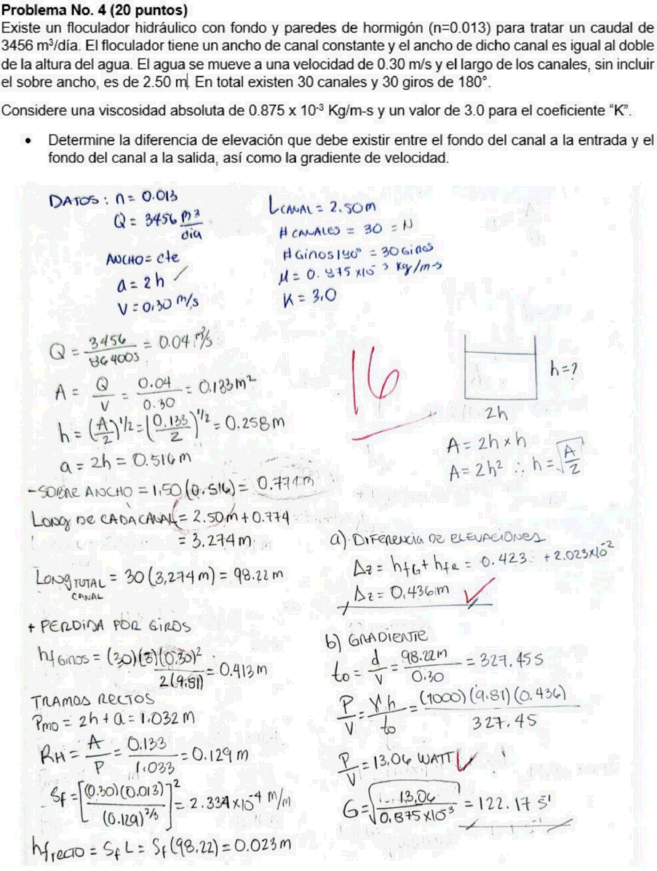 Problema No. 4 (20 puntos)
Existe un floculador hidráulico con fondo y paredes de hormigón (n=0.013) para tratar un caudal de
3456 m³/día. El floculador tiene un ancho de canal constante y el ancho de dicho canal es igual al doble
de la altura del agua. El agua se mueve a una velocidad de 0.30 m/s y el largo de los canales, sin incluir
el sobre ancho, es de 2.50 m. En total existen 30 canales y 30 giros de 180°.
Considere una viscosidad absoluta de 0.875 x 10⁻³ Kg/m-s y un valor de 3.0 para el coeficiente “K”.
• Determine la diferencia de elevación que debe existir entre el fondo del canal a la entrada y el
fondo del canal a la salida, así como la gradiente de velocidad.
DATOS: n = 0.013
Q = 3456 m³/dia
ANCHO = cte
a = 2h
V = 0.30 m/s
LCANAL = 2.50m
# CANALES = 30 = N
# Giros 180° = 30 Giros
μ = 0.875 x10⁻³ kg/m-s
K = 3.0
Q = 3456/86400s = 0.04 m³/s
A = Q/V = 0.04/0.30 = 0.133m²
h = (A/2)^1/2 = (0.133/2)^1/2 = 0.258m
a = 2h = 0.516m
16
h=?
2h
A = 2h x h
A = 2h² ∴ h = √A/2
- SOBRE ANCHO = 1.50 (0.516) = 0.774m
LONG DE CADA CANAL = 2.50m + 0.774
= 3.274m
Long TOTAL CANAL = 30 (3,274m) = 98.22m
+ PERDIDA POR GIROS
hf GIROS = (30)(3)(0.30)²/2(9.81) = 0.413m
TRAMOS RECTOS
Pmo = 2h + a = 1.032m
RH = A/P = 0.133/1.033 = 0.129m
Sf = [(0.30)(0.013)/(0.129)^2/3]² = 2.334x10⁻⁴ m/m
hf recto = Sf L = Sf (98.22) = 0.023m
a) DIFERENCIA DE ELEVACIONES
Δz = hfG + hfR = 0.423 + 2.023x10⁻²
Δz = 0,436m
b) GRADIENTE
to = d/v = 98.22m/0.30 = 327.45s
P/V = γh/to = (1000)(9.81)(0.436)/327.45
P/V = 13.06 WATT
G = √13,06/0.875x10⁻³ = 122.17 s⁻¹